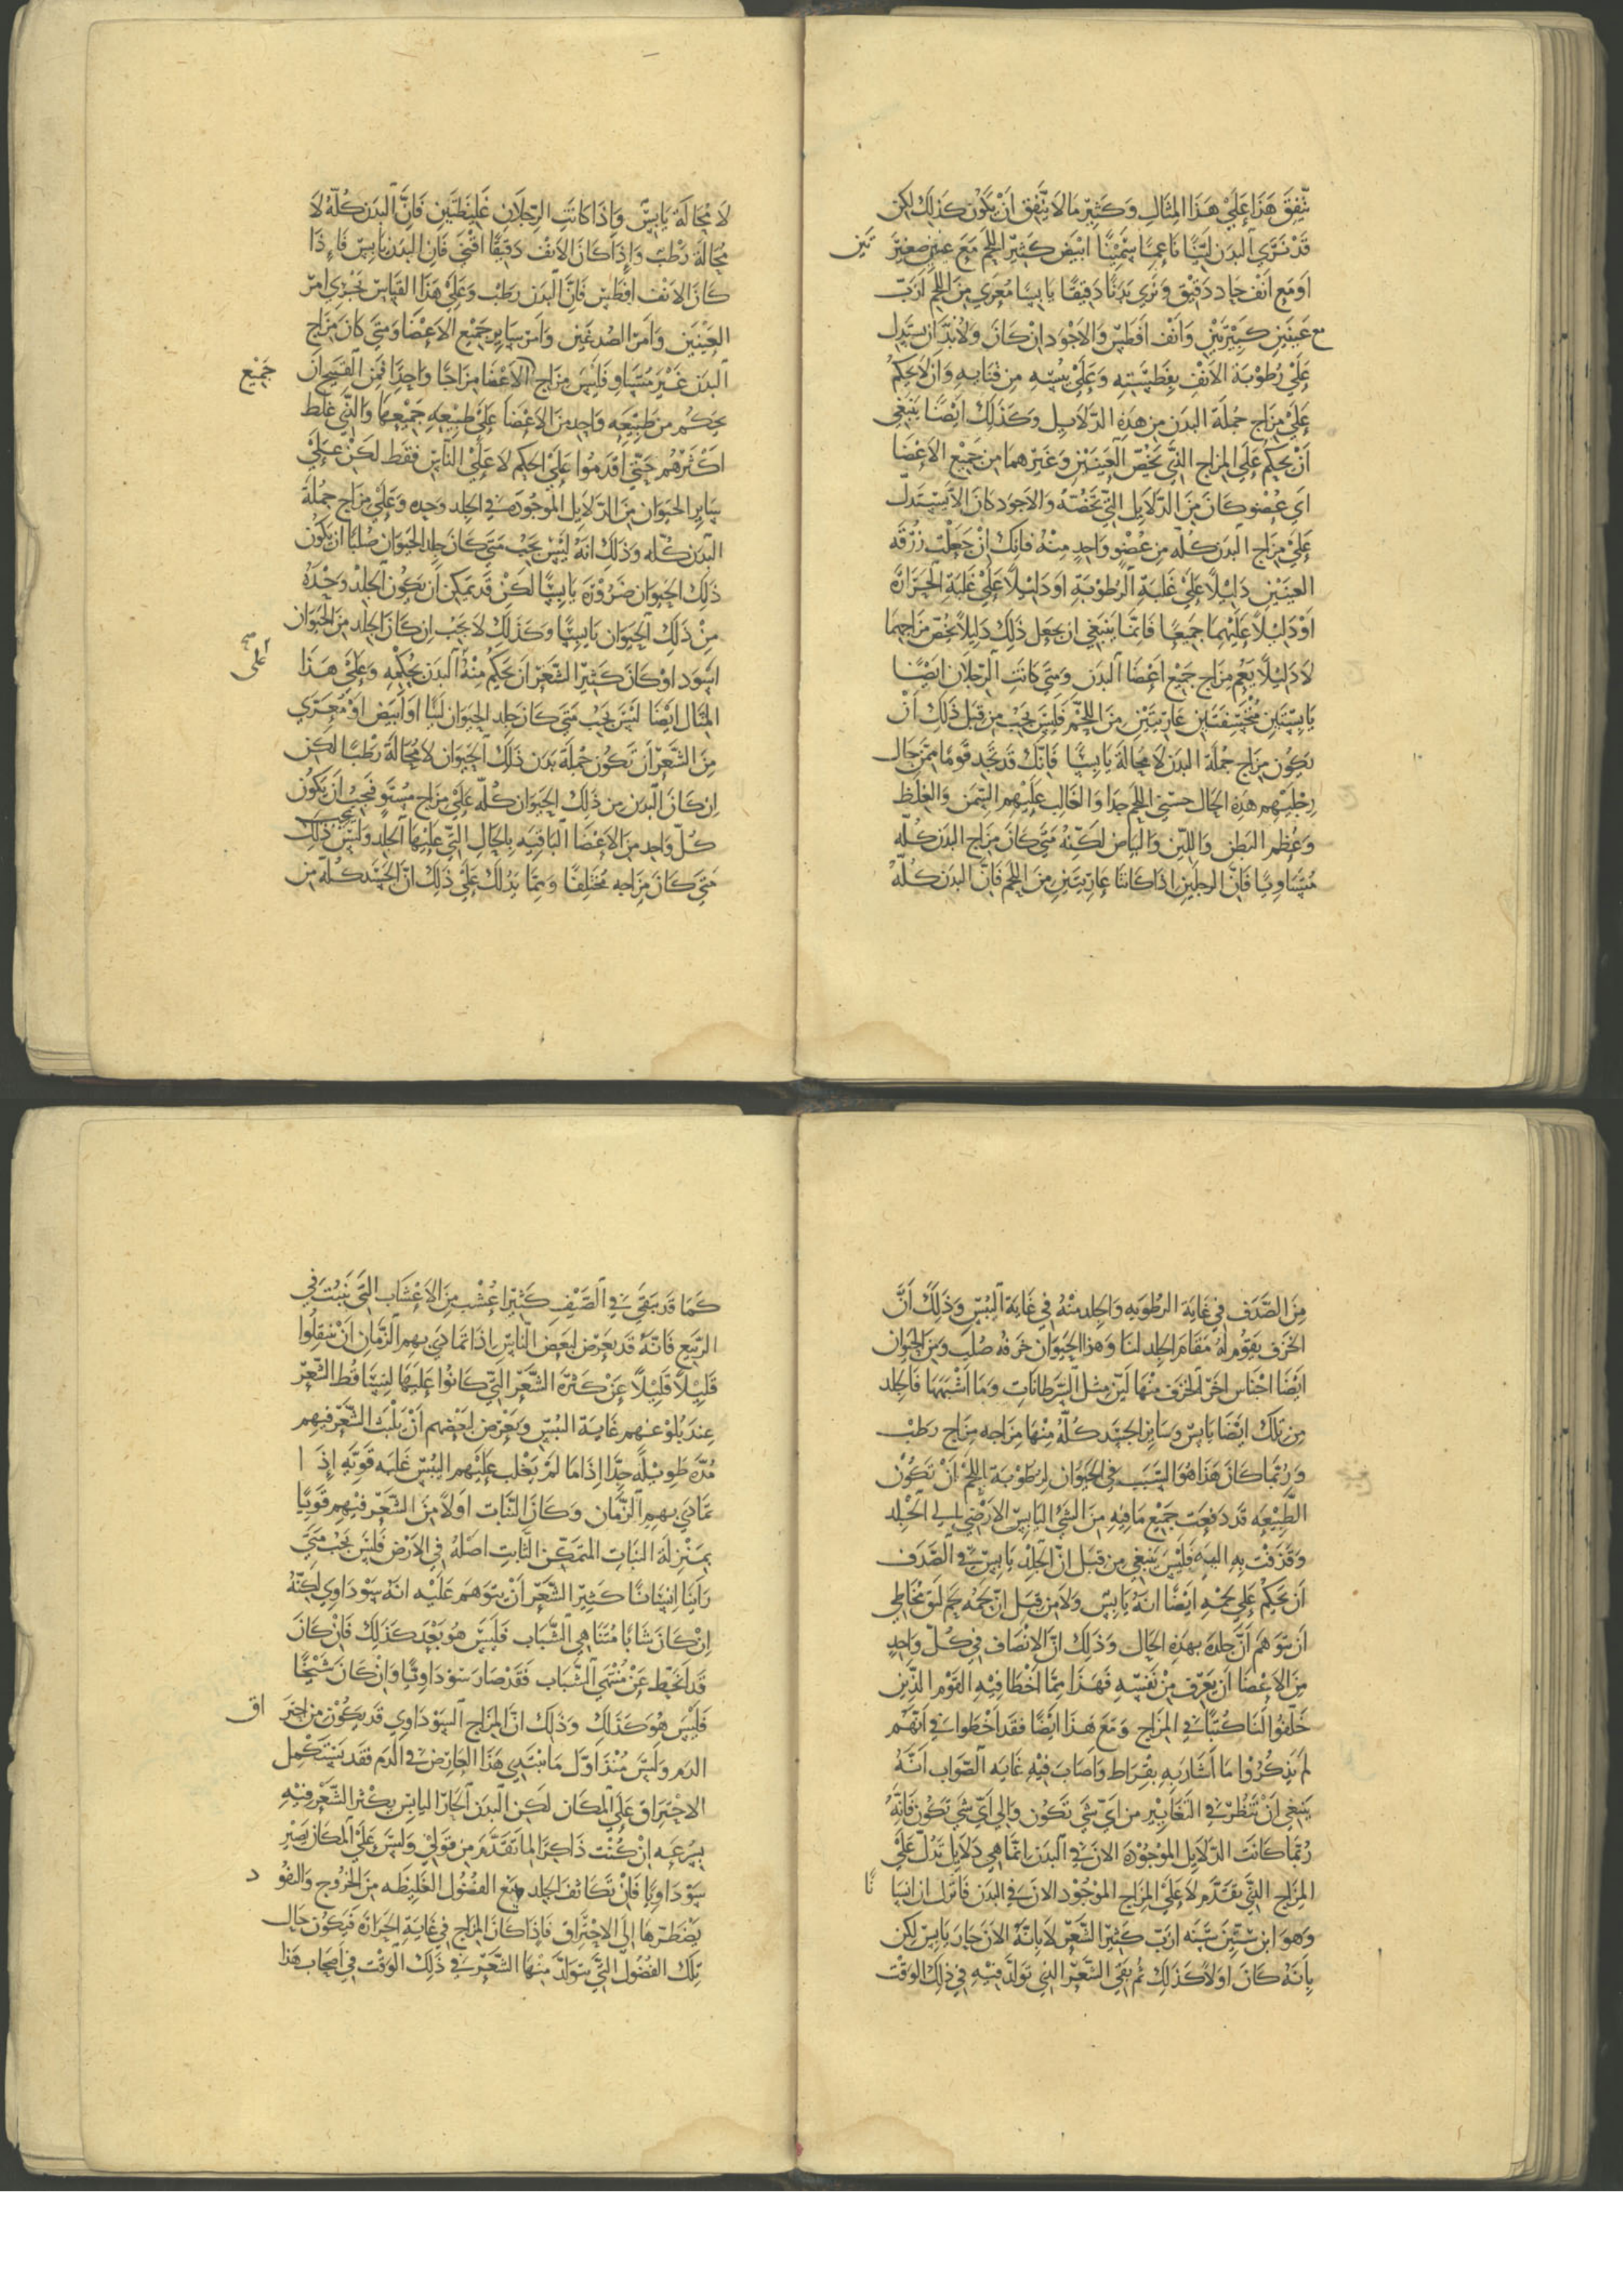 يتّفِقَ هَذَا عَلَي هَذَا المِثَالِ وَكَثِيرٌ مَا لَا يَتَّفِق انْ يَكُونُ كذلِكَ لكن
قَدْ نَرَي البَدَن لَيّنًا نَاعِمًا سَمِيْنًا ابْيَض كَثِيْر اللحْمِ مَعَ عَيْنين صَغِيْرَ
تَيْن
اَو مَع اَنْف حَاد دَقيْق وَنَرَي بَدَنًا دَقيقًا يَابِسًا مُعَرّي مِنَ اللحْم ازَبّ
مع عَيْنَيْن كَبِيْرَتَيْن وَانْف افَطَس وَالاجْوَد اِنْ كَانَ وَلَا بُدَّ ان يستَدِل
عَلَي رُطوْبَة الاَنْفِ بِفَطسَتِهِ وَعَلَي يُبسِهِ مِن قنَايهِ وَان لا يَحكمُ
عَلَي مِزَاج جُملَة البَدَن مِن هَذِهِ الدّلَايل وَكَذَلِكَ ايَضًا يَنْبَغِي
اَنْ يحكم عَلَي المِزَاج الَّتي يَخُصّ العَيْنَيْنِ وَغَيرهما مِن جَمِيْع الاَعْضَا
اي عُضْو كَانَ مِنَ الدّلَايل الَّتي تَخُصّهُ وَالاجوَد كَانَ الّا يَسْتَدلّ
عَلَي مِزَاج البَدَن كُلّهِ مِن عُضْو وَاحِدٍ مِنْهُ فَانكَ اِنْ جَعَلْت زُرْقَة
العَيْنَيْن دَلِيْلاً عَلَي غَلبَةِ الرُّطوْبَةِ اَوْ دَلِيْلاً عَلَي غَلبَةِ الحَرَارَة
اَوْ دَليْلاً عَليْهما جَميْعًا فَانمّا يَنبَغي ان يجعَل ذَلِكَ دَلِيلاً يخصّ مزَاجهما
لَا دَليْلاً يَعُم مِزَاج جَمِيْع اعَضَا البَدَن وَمَتي كَانَتِ الرّجْلَان ايَضًا
يَابِسَتَين مُتحَشّفَتَين عَارِيَتَيْن مِنَ اللحْم فَليْسَ يجَبْ مِن قبَل ذَلِكَ اَنْ
يَكُون مِزَاج جُملَة البَدَن لَا محَالَة يَابِسًا فَانكَ قد تجد قَوْمًا ممّن حَال
رِجْليهِم هَذِهِ الحَال حسَني اللحْمِ جدًا وَالغَالِب عَلَيْهِم السِّمَن وَالغِلَظ
وَعُظم البَطن وَاللّين وَالبيَاض لكنّه متَي كَانَ مِزَاج البَدَن كُلّه
مُتسَاويًا فَانّ الرجليْن اِذَا كَانتَا عَاريتَين مِنَ اللحْمِ فَانَّ البَدَن كُلّهُ
لَا محَالَة يَابِسٌ وَاِذَا كَانَتِ الرّجْلَان غَليْظَتَين فَانَّ البَدَن كُلّهُ لاَ
محَالَة رَطْبٌ وَاِذَا كَانَ الاَنْف دَقيْقًا اقْنَي فَان البَدَن يَابِس فَاِذَا
كَانَ الاَنف افَطس فَانَّ البَدَن رَطب وَعَلَي هَذَا القيَاس يجْري امْر
العَيْنَيْن وَامَر الصُّدغَيْن وَامْر سَاير جَميْع الاَعْضَا وَمتي كَانَ مِزَاج
البَدَن غَيْر مُتسَاو فَليْسَ مِزَاج الاَعْضَا مِزَاجًا وَاحِدًا فمن القَبيْح انْ
جَمِيْع
يحكُم مِن طبِيْعَه وَاحِد مِنَ الاَعْضَا عَلَي طَبيْعَه جَمِيْعهَا وَالَّتي غلط
اكْثَرَهُم حَتي اقدَمُوا عَلَي الحُكم لَا عَلَي النَّاس فقَط لكن عَلَي
سَايِر الحيَوَان مِنَ الدّلَايل الموْجُودَة في الجِلد وَحدِه وَعَلَي مِزَاج جُملَة
البَدَن كُلّه وَذَلِكَ انّهُ لَيْسَ يجبْ مَتي كَانَ جلد الحيَوَان صُلبًا ان يَكُوْن
ذَلِكَ الحيوَان ضَرُوْرَة يَابِسًا لكنْ قد يمكن اَن يَكُون الجِلد وَحْدَهُ
مِنْ ذَلِكَ الحيَوَان يَابِسًا وَكَذَلِكَ لَا يجَب اِن كَانَ الجِلد مِنَ الحَيَوَان
اسْوَد اَوْ كَانَ كَثِيْر الشَّعَر اَن يحكِم مِنْهُ البَدَن بحُكْمِهِ وَعَلَي هَذَا
علي صح
المِثَال ايضًا لَيْسَ يجَب مَتي كَانَ جِلد الحيَوان لَينًا اَو اَبيَض اَوْ مُعَرّي
مِنَ الشَّعَر اَن تَكُون جُمْلَة بَدَن ذَلِكَ الحيَوَان لَا محَالَة رَطبًا لكن
اِن كَانَ البَدَن مِن ذَلِكَ الحيَوَان كُلّه عَلَي مِزَاج مُسْتَو فيجب انْ يَكُون
كُلّ وَاحِد مِنَ الاَعْضَا البَاقيَه بِالحَالِ الَّتي عَلَيْهَا الجِلد وَلَيْسَ يجب ذَلِكَ
مَتي كَانَ مِزَاجه مختلِفًا وَممّا يَدُلّكَ عَلَي ذَلِكَ انّ الجَسَد كُلّه مِن
مِنَ الصَّدَف في غَايَة الرطُوبَه وَالجِلد مِنْهُ في غَايَة اليُبْس وَذَلِكَ انَّ
الخزَف يَقوُم لَهُ مَقَام الجِلد لنَا وَهذا الحيَوان خزَفه صُلبْ وَمن الحيَوان
ايَضًا اجنَاس اخَر الخزَف مِنْهَا لَيّن مِثل السَّرطَانَات وَمَا اَشْبَهَهَا فَالجِلد
مِن تلكَ ايَضًا يَابِس وَسَاير الجسَد كُلّه مِنْهَا مِزَاجه مِزَاج رَطبْ
وَرُبّما كَانَ هَذَا هُوَ السَّبَب في الحيوَان لِرُطوبَة اللحْم اَنْ تَكُوْن
الطَّبيْعَه قد دَفعَت جَمِيْع مَا فيْهِ مِنَ الشَّي اليَابِس الاَرْضِي الي الجِلد
وَقذَفْت بِهِ اليهِ فَليْسَ يَنبَغي مِن قبَل انّ الجِلد يَابِس في الصَّدَف
اَن يحكم عَلي لحْمِهِ ايَضًا انّهُ يَابِس وَلَا مِن قِبَل اِنّ لحمَهُ لحم لزق مُخَاطِي
اَن يتوَهم اَنَّ جلدَه بهَذِهِ الحَال وَذَلِكَ انّ الاِنْصَاف في كُلّ وَاحِدٍ
مِنَ الاَعْضَا اَن يَعْرف مِنْ نَفسِهِ فَهَذَا ممّا اَخْطَا فيْهِ القَوْم الَّذِين
خَلّفوا لَنَا كُتُبًا في المِزَاج وَمَعَ هَذَا ايَضًا فقَد اَخْطَوا في انّهُم
لم يَذكُرُوا مَا اَشَار بِهِ بقْرَاط وَاصَابَ فيْهِ غَايَه الصَّوَاب انّهُ
يَنبغي اَنْ تَنظُر في التغَايِيْر مِن اَيّ شَي تَكُون وَالي اَيّ شَي تَكُون فَانّهُ
رُبّما كَانَت الدّلَايل الموجُوْدَة الان في البَدَن انمّا هِي دَلَايِل تَدُلّ عَلَي
المزَاج الَّتي تقَدَّم لَا عَلي المِزَاج الموْجُود الان في البَدَن فَانْزل ان انسَا
نًا
وَهوَ ابن سِتّيْنَ سَنَه ازَبّ كَثِيْر الشَّعَر لَا بِانّهُ الاَنَ حَار يَابس لكن
بِانّهُ كَانَ اوَلاً كَذَلِكَ ثم بَقي الشَّعَر الَّتي تَولّد فيْهِ في ذَلِكَ الوَقت
كَمَا قَد يَبقَي في الصَّيْفِ كَثِيْر اعُشْب مِنَ الاَعْشَاب الَّتي تَنبُت في
الرَّبيْع فَانّهُ قد يَعْرض لِبَعض النَّاس اِذَا تمَادَي بهِم الزَّمَان اَنْ يَنْتقِلوا
قَليْلاً قَليْلاً عَنْ كَثْرَة الشَّعَر الَّتي كَانُوا عَلَيْهَا ليَتسَاقُط الشَّعَر
عِندَ بُلوْغهِم غَايَة اليُبْس وَيَعْرض لِبَعْضِهم اَنْ يَلْبَث الشَّعَر فيْهم
مُدّه طَويْلَه جِدًّا اِذَا مَا لَمْ يَغْلب عَلَيْهِم اليُبْس غَلَبه قوّيه اِذَا
تمَادَي بهِم الزَّمَان وَكَانَ النَّبَات اوَلاً مِنَ الشَّعَر فيْهِم قَوِيًا
بمنْزِلَة النَبَاتِ المتمَكّن الثَّابِت اصْلهُ في الاَرْض فَليْسَ يجبْ مَتي
رَايْنَا انسَانًا كَثِيْر الشَّعَر اَنْ يتوَهمَ عَلَيْه انّهُ سَوْدَاوِي لكنّهُ
اِنْ كَانَ شَابًا مُتنَاهِي الشَّبَاب فَلَيسَ هُوَ بَعْد كَذَلِكَ فَانْ كَانَ
قَد انحَطّ عَنْ مُنْتهَي الشَّبَاب فَقَدْ صَارَ سَوْدَاويًّا وَاِنْ كَانَ شَيْخًا
فَليْسَ هُوَ كَذَلِكَ وَذَلِكَ انّ المزَاج السَّوْدَاوِي قد يكُوْن مِن احتِرَ
اق
الدَم وَليْسَ مُنْذ اوّل مَا يَبْتَدِي هَذَا العَارض في الدَم فقَد يَسْتَكْمِل
الاحْتِرَاق عَلَي المكَان لكن البَدَن الحَارّ اليابس يكْثر الشَّعَر فيْهِ
بسُرعَه اِنْ كُنْت ذَاكِرًا لما تَقَدَّمَ مِن قَوْلي وَليْسَ عَلَي المكَان يَصِيْر
سَوْدَاويًا فَانْ تَكَاثف الجِلد يمْنع الفُضُول الغَليْظَه مِنَ الخرُوج وَالنفُو
د
يَضْطرّهَا اِلي الاِحْتِراق فَاِذَا كَانَ المِزَاج في غَايَة الحَرَارَة فيَكُون حَال
تِلكَ الفُضُول الَّتي يتوَلّد مِنْهَا الشَّعَر في ذَلِكَ الوَقْت في اَصْحَاب هَذا